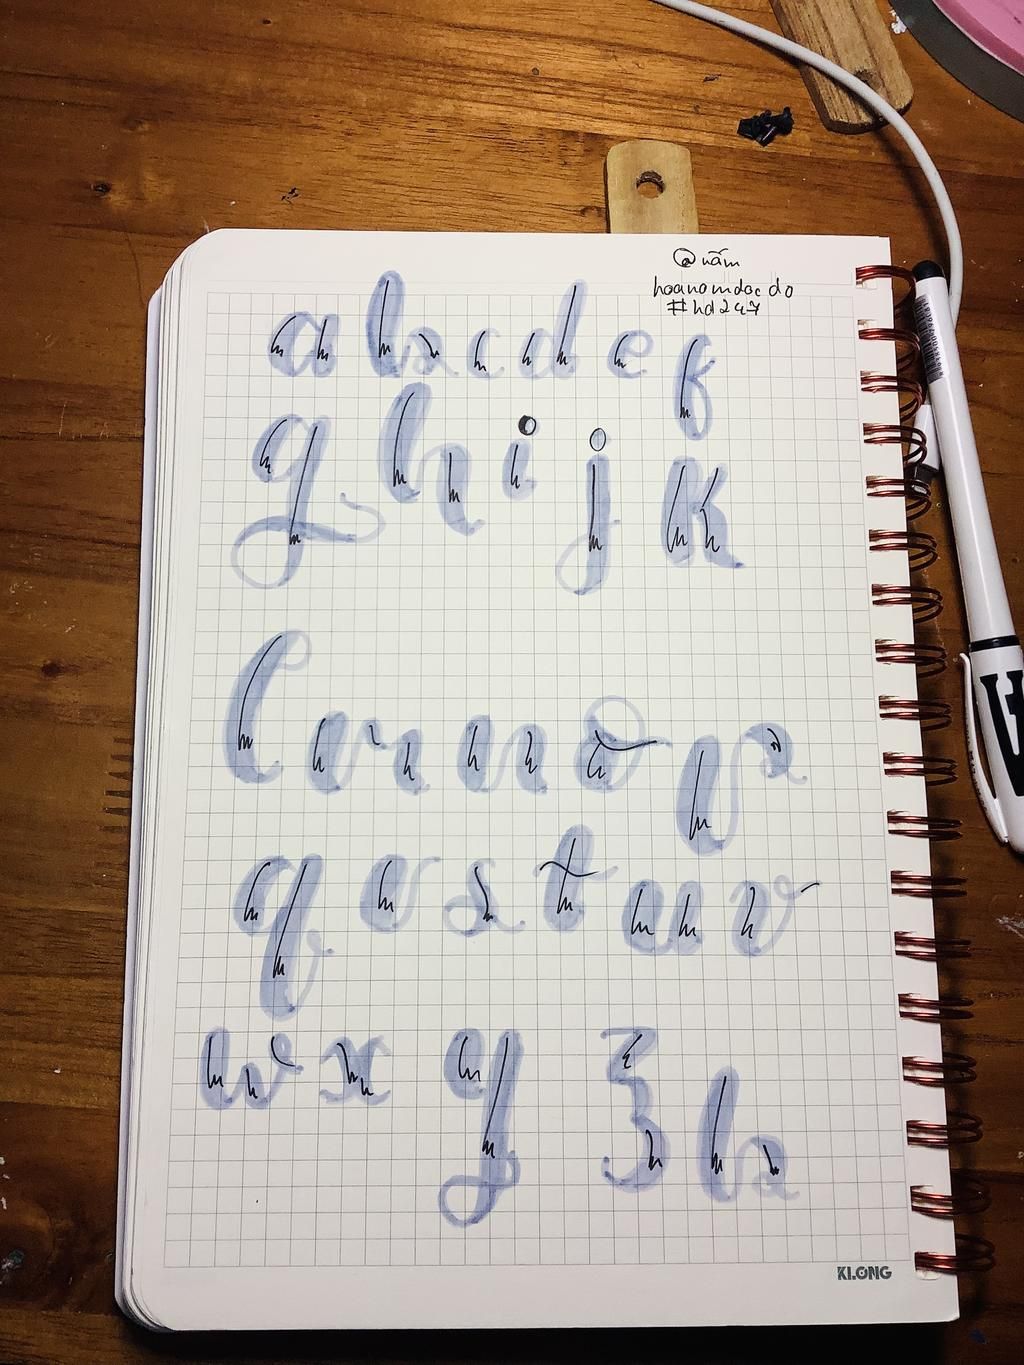 @nấm
hoanamdocdo
#hd247
a b c d e f
g h i j k
l m n o p
q r s t u v
w x y z b
KLONG